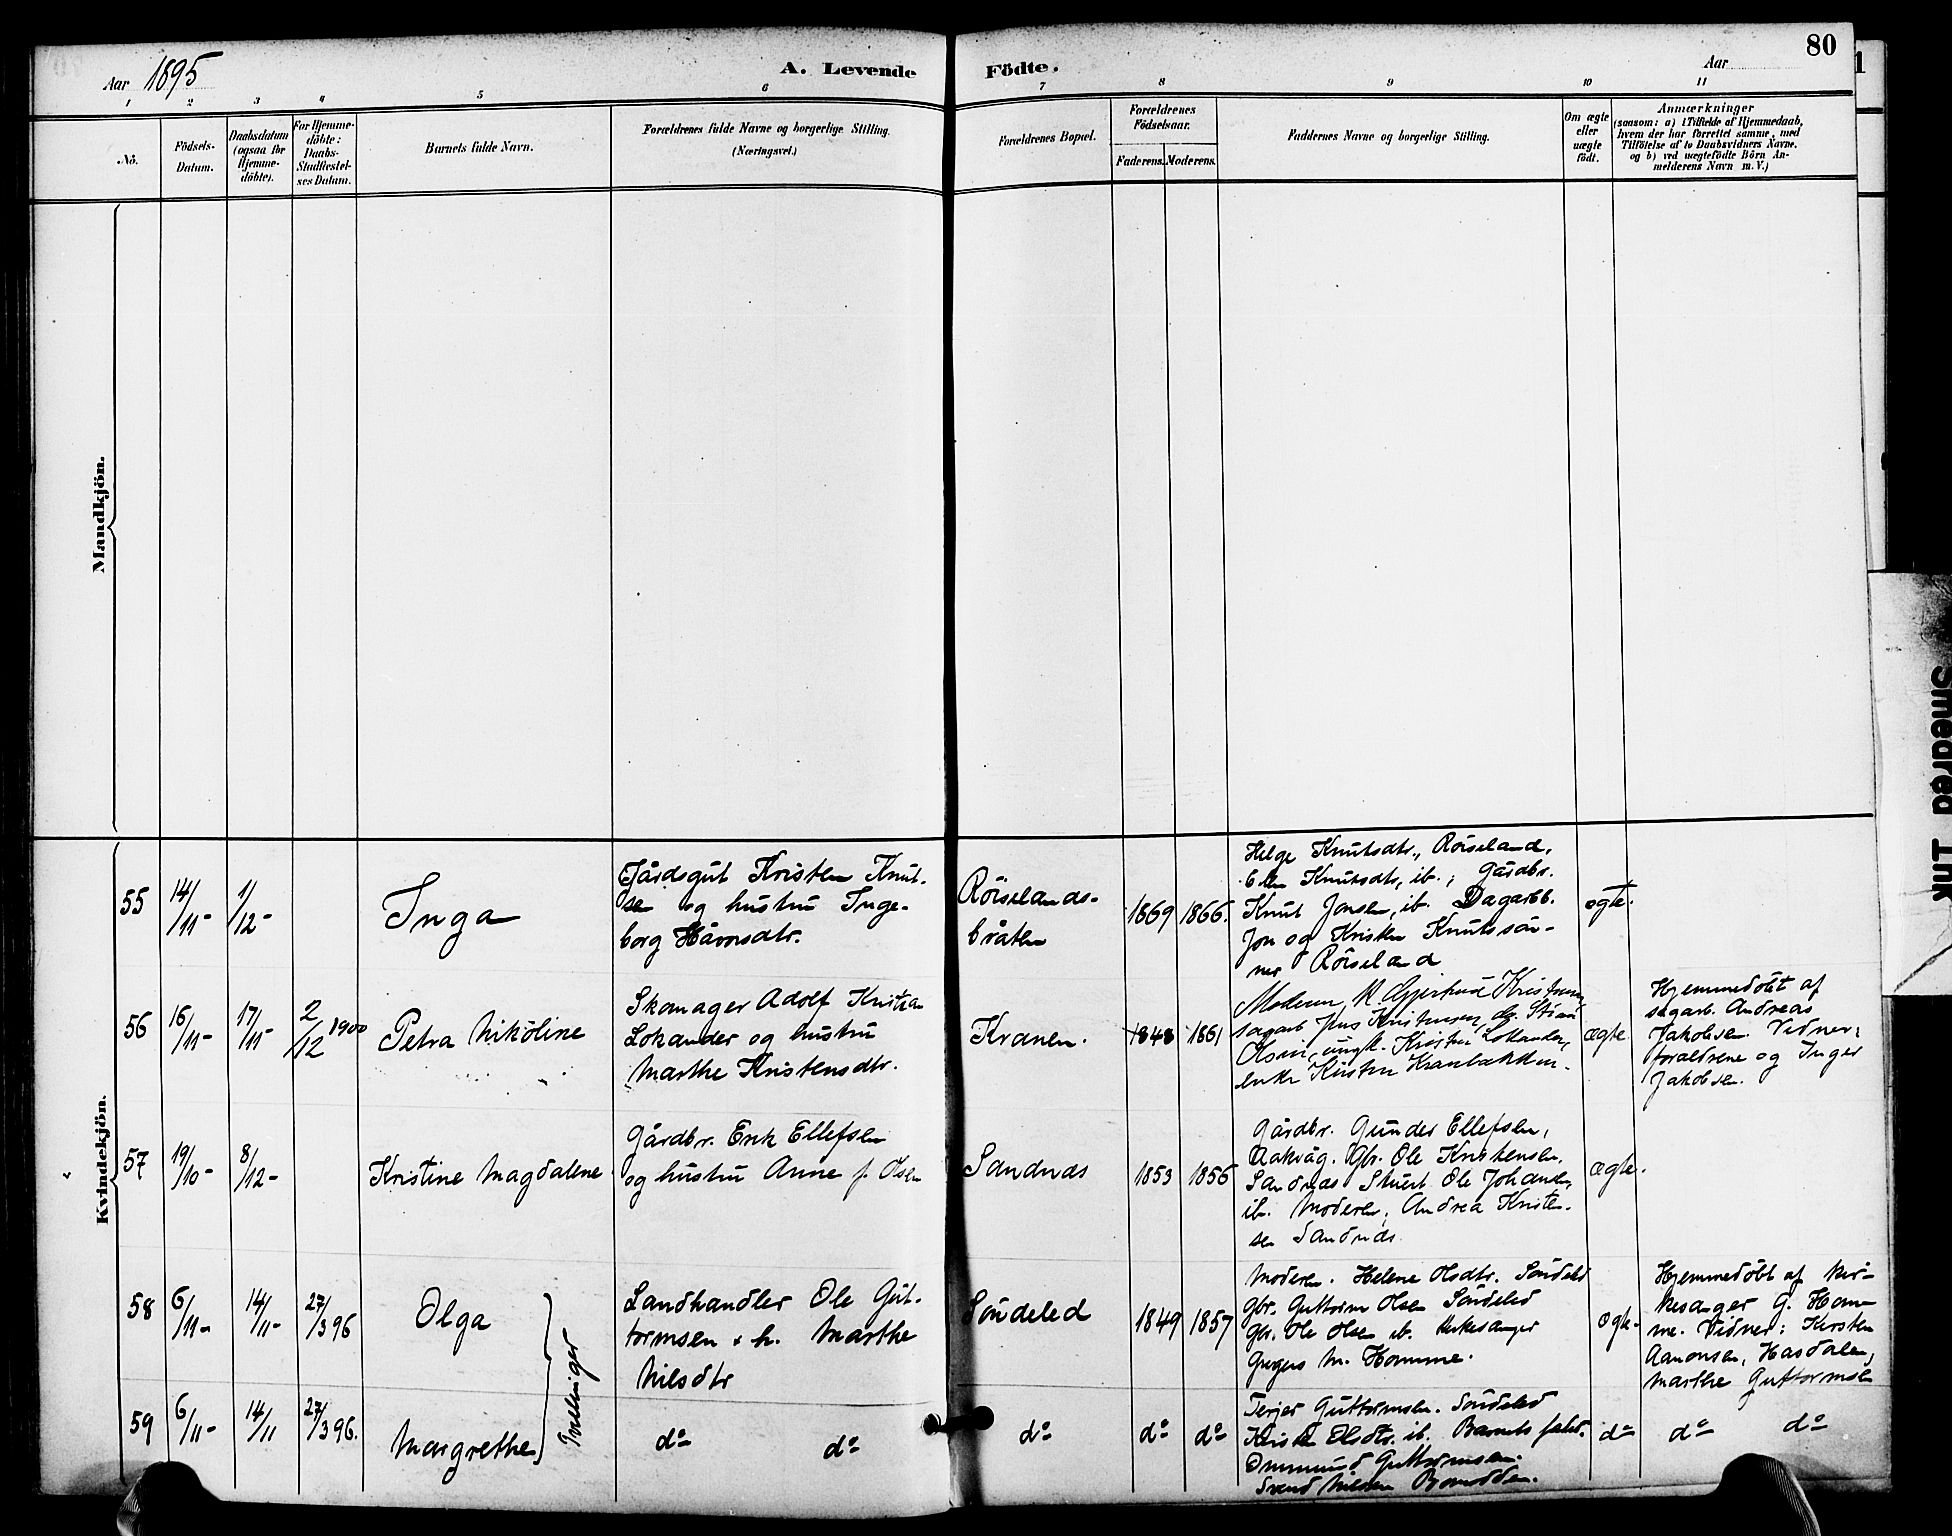 Aar 1895
A. Levende Födte.
Aar
80
1
1 2 3 4 5 6 7 8 9 10 11
No.
Födsels-
Datum.
Daabsdatum
(ogsaa for
Hjemme-
döbte).
For Hjemme-
döbte:
Daabs-
Stadfæstel-
ses Datum.
Barnets fulde Navn.
Forældrenes fulde Navne og borgerlige Stilling.
(Næringsvei.)
Forældrenes Bopæl.
Forældrenes
Födselsaar.
Faderens. Moderens.
Faddernes Navne og borgerlige Stilling.
Om ægte
eller
uægte
födt.
Anmærkninger
(saasom: a) i Tilfælde af Hjemmedaab,
hvem der har forrettet samme, med
Tilföielse af to Daabsvidners Navne,
og b) ved uægtefödte Börn An-
melderens Navn m. V.)
Mandkjön.
Kvindekjön.
55
14/11-
1/12-
Inga
Gårdsgut Kristen Knut-
sen og hustru Inge-
borg Håvorsdtr.
Röiselands-
bråten
1869
1866.
Helge Knutsdtr., Röiseland,
Knutsdtr, ib.; Gårdbr.
Knut Jonsen, ib. Dagarbb.
Jon og Kristen Knutssön-
ner Röiseland
ægte.
56
16/11-
17/11-
2/12 1900
Petra Nikoline
Skomager Adolf Kristian
Lokander og hustru
Marthe Kristensdtr.
Kranen.
1848
1861
Moderen, Gjerthrud
sagarb. Jens Kristensen,
Olsen, ungk. Kristen Lokander,
enke Kirsten Kranbakken.
ægte
Hjemmedöbt af
sagarb. Andreas
Jakobsen. Vidner:
forældrene og Inger
Jakobsen.
57
19/10-
8/12-
Kristine Magdalene
Gårdbr. Erik Ellefsen
og hustru Anne f. Olsen
Sandnæs
1853
1856
Gårdbr. Gunder Ellefsen,
Aakvåg. Gbr. Ole Kristensen,
Sandnæs Ole Johansen,
ib. Moderen, Andrea Kristen-
sen Sandnæs
ægte.
58
6/11-
14/11-
27/3 96
Olga
Tvillinger
Landhandler Ole Gut-
tormsen & h. Marthe
Nilsdtr
Söndeled
1849
1857
Moderen. Helene Olsdtr. Söndeled
Gbr. Guttorm Olsen Söndeled
Gbr. Ole Olsen ib. Kirkesanger
Gregers M. Homme.
Ægte.
Hjemmedöbt af Kir-
kesanger G. Hom-
me. Vidner: Kirsten
Aanonsen, Hasdalen,
Marthe Guttormsen
59
6/11-
14/11
27/3 96.
Margrethe
do do
do
do
do
Terjer Guttormsen. Söndeled
Kirsten Olsdtr. ib. Barnets fader.
Ommund Guttormsen.
Svend Nilsen
do
do do
Smeared Ink